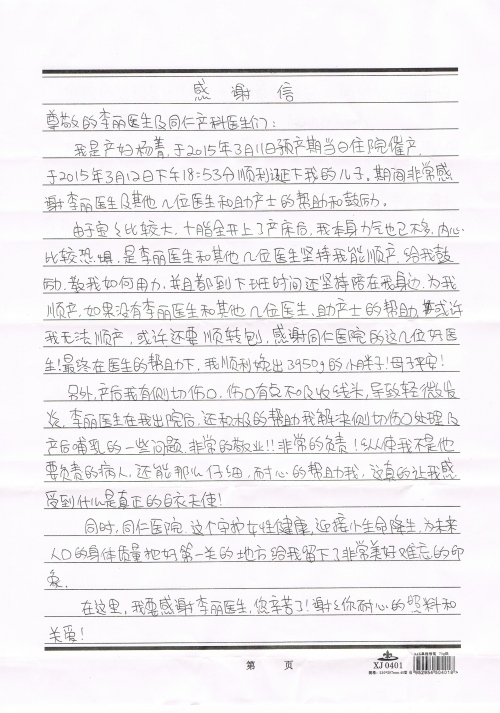 感谢信
尊敬的李丽医生及同仁产科医生们：
我是产妇杨菁，于2015年3月11日预产期当日住院催产，
于2015年3月12日下午18:53分顺利诞下我的儿子。期间非常感
谢李丽医生及其他几位医生和助产士的帮助和鼓励。
由于宝宝比较大，十指全开上了产床后，我本身力气也已不多，内心
比较恐惧，是李丽医生和其他几位医生坚持我能顺产，给我鼓
励，教我如何用力，并且都到下班时间还坚持陪在我身边，为我
顺产，如果没有李丽医生和其他几位医生，助产士的帮助，或许
我无法顺产，或许还要顺转刨，感谢同仁医院的这几位好医
生！最终在医生的帮助下，我顺利娩出3950g的小胖子！母子平安！
另外，产后我有侧切伤口，伤口有点不吸收线头，导致轻微发
炎，李丽医生在我出院后，还积极的帮助我解决侧切伤口处理及
产后哺乳的一些问题，非常的敬业！！非常的负责！纵使我不是他
要负责的病人，还能那么仔细，耐心的帮助我，这真的让我感
受到什么是真正的白衣天使！
同时，同仁医院，这个守护女性健康，迎接小生命降生，为未来
人口的身体质量把好第一关的地方给我留下了非常美好难忘的印
象。
在这里，我要感谢李丽医生，您辛苦了！谢谢你耐心的照料和
关爱！
第 页
XJ 0401